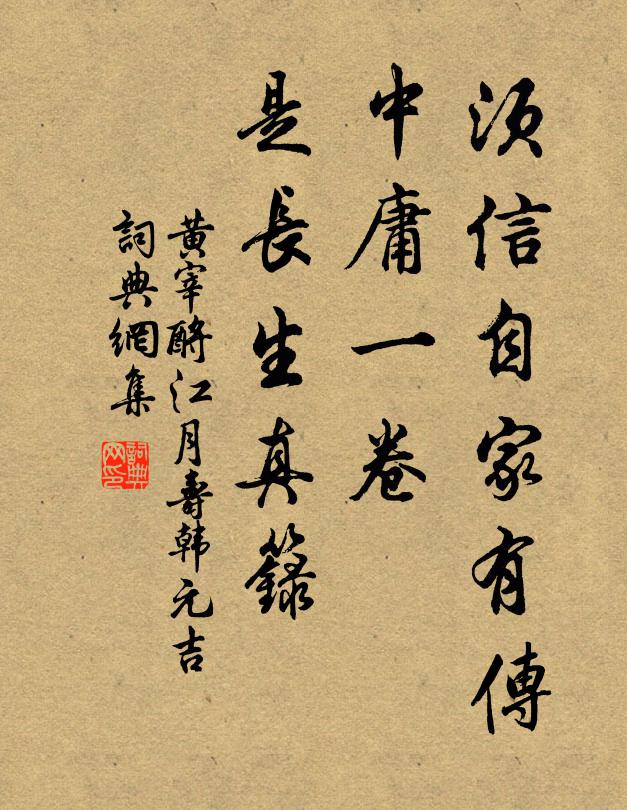 須信自家有傳
中庸一卷
是長生真籙
黄宰酹江月壽韩元吉
詞典網集
詞典网印